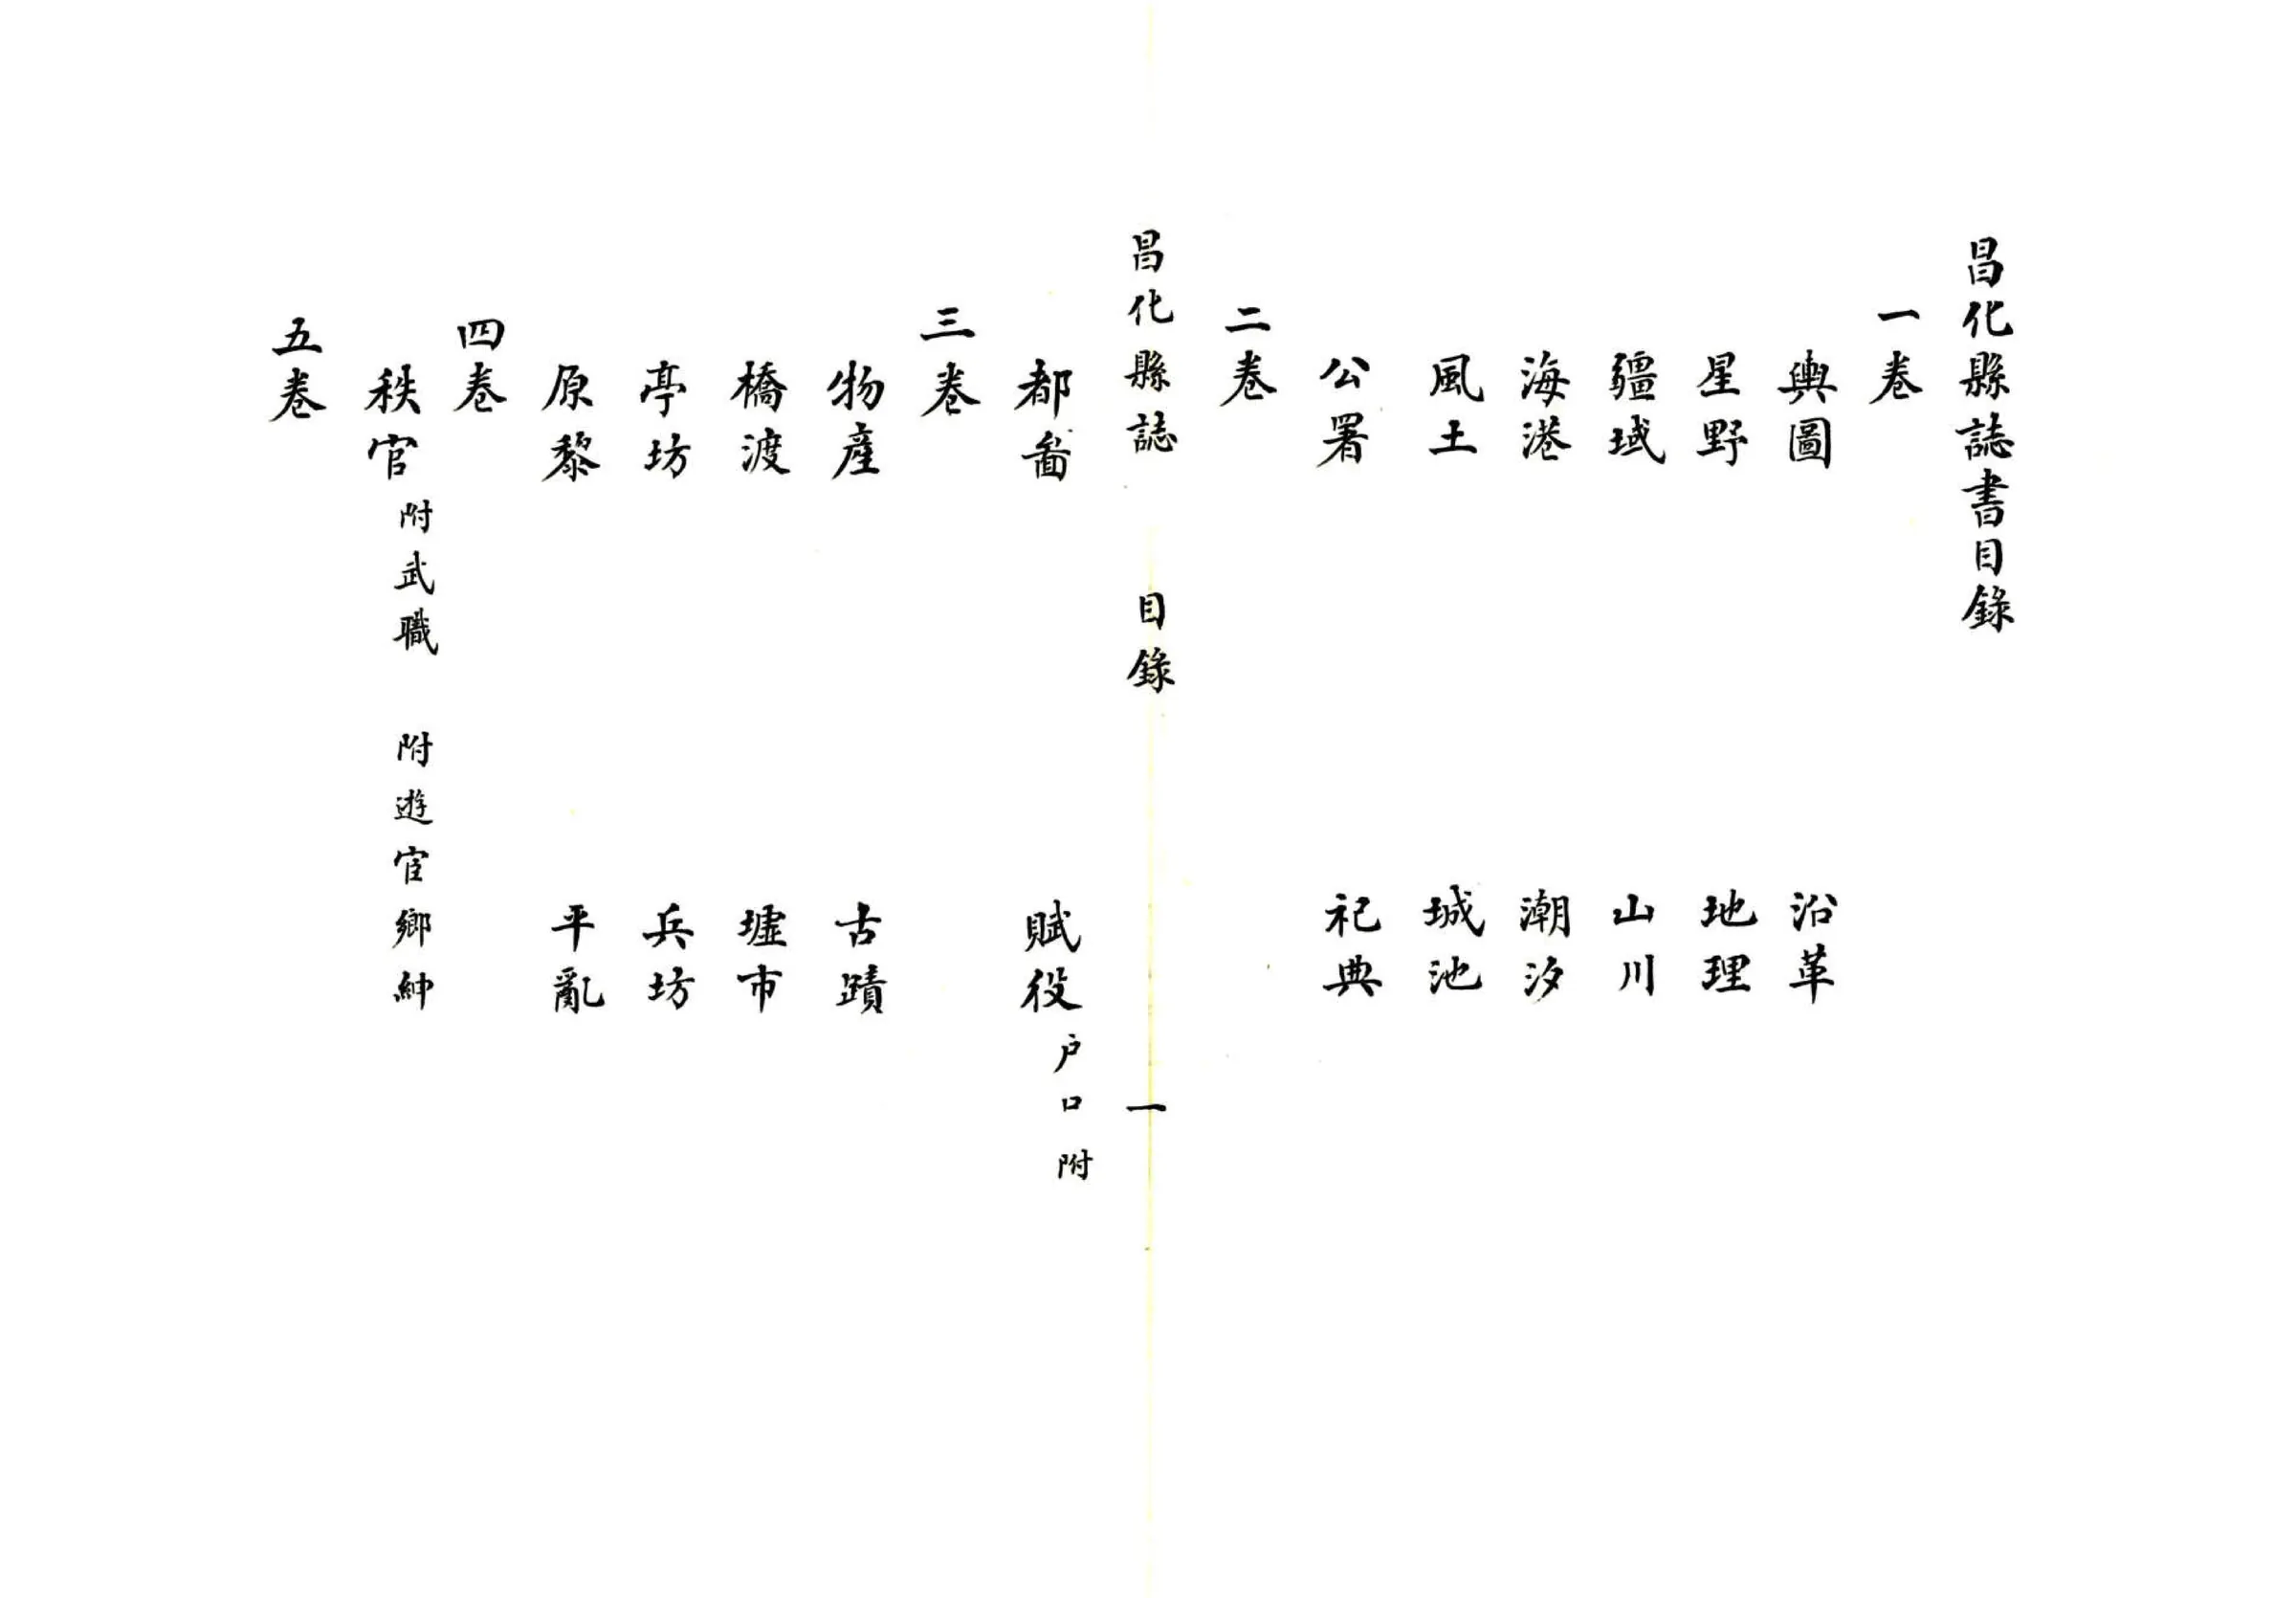 昌化縣誌書目錄
一卷
輿圖 沿革
星野 地理
疆域 山川
海港 潮汐
風土 城池
公署 祀典
二卷
昌化縣誌 目錄 一
都啚 賦役 户口附
三卷
物産 古蹟
橋渡 墟市
亭坊 兵坊
原黎 平亂
四卷
秩官 附武職 附遊宦鄉紳
五卷